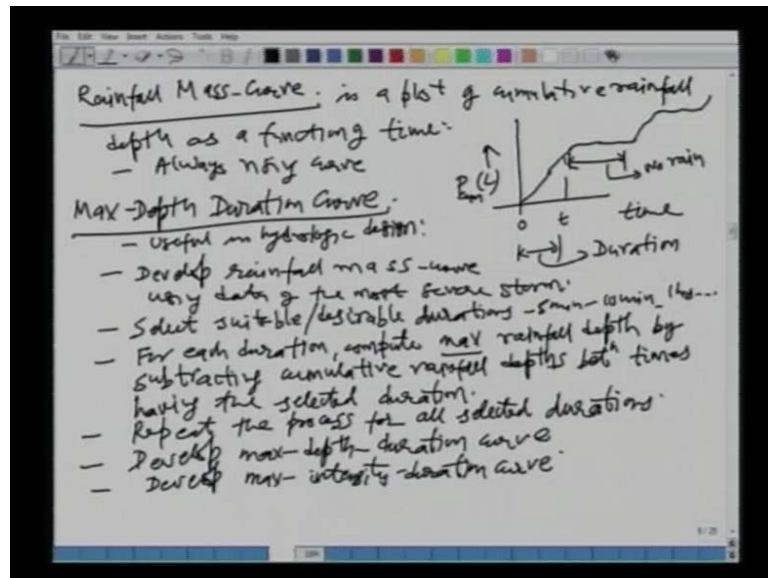 File Edit View Insert Actions Tools Help
Rainfall Mass-Curve. is a plot of cumulative rainfall
depth as a function of time:
- Always rising curve
Pcum (L)
no rain
0 t time
Duration
Max-Depth Duration Curve.
- Useful in hydrologic design:
- Develop rainfall mass-curve
using data of the most severe storm.
- Select suitable/desirable durations - 5min - 10min - 1hr...
- For each duration, compute max rainfall depth by
subtracting cumulative rainfall depths betn times
having the selected duration.
- Repeat the process for all selected durations.
- Develop max-depth-duration curve
- Develop max-intensity-duration curve.